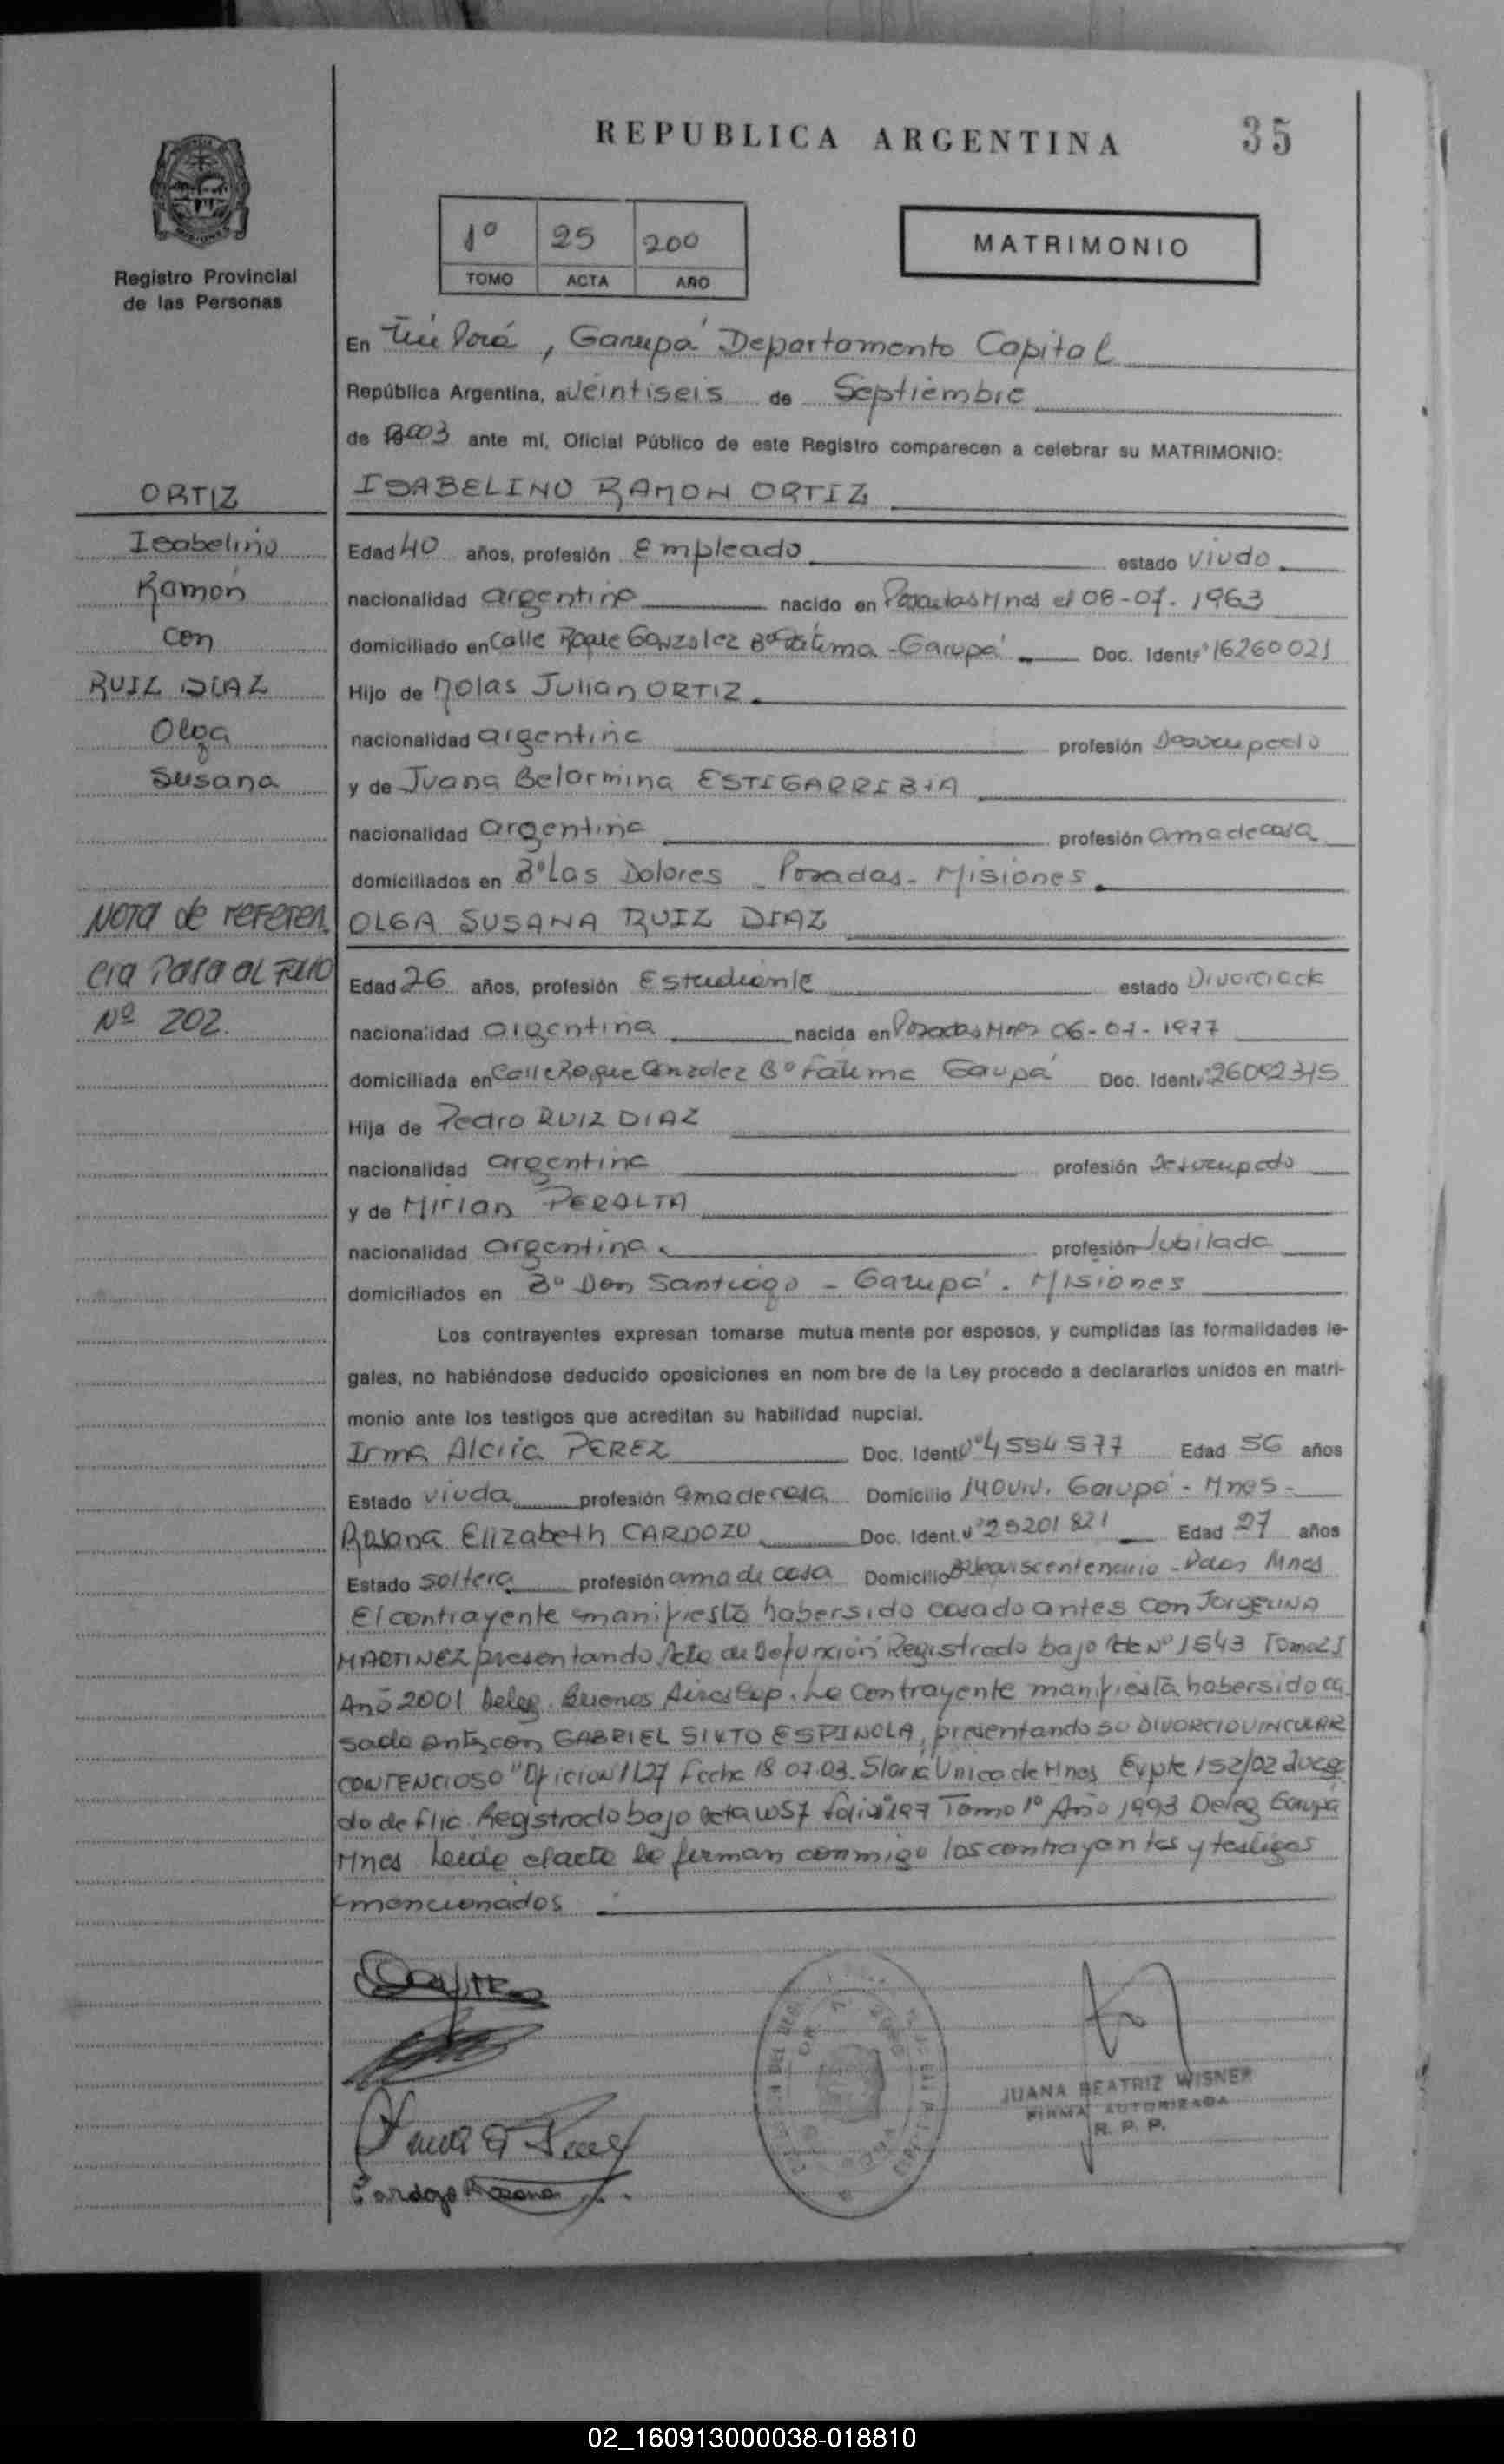 REPUBLICA ARGENTINA
35
Registro Provincial
de las Personas
1º 25 200
TOMO ACTA AÑO
MATRIMONIO
En Porá, Garupá Departamento Capital
República Argentina, a Veintiseis de Septiembre
de 2003 ante mí, Oficial Público de este Registro comparecen a celebrar su MATRIMONIO:
ORTIZ
Isabelino
Ramón
con
RUIZ DIAZ
Olga
Susana
Nota de referen
cia Pasa al Folio
Nº 202.
ISABELINO RAMON ORTIZ
Edad 40 años, profesión Empleado estado Viudo
nacionalidad argentino nacido en Posadas Mnes el 08-07-1963
domiciliado en Calle Roque Gonzalez Bº Fatima - Garupá Doc. Ident. 16260021
Hijo de Julian ORTIZ
nacionalidad argentina profesión Desocupado
y de Juana Belarmina ESTIGARRIBIA
nacionalidad argentina profesión ama de casa
domiciliados en Bº Las Dolores - Posadas - Misiones
OLGA SUSANA RUIZ DIAZ
Edad 26 años, profesión Estudiante estado Divorciada
nacionalidad argentina nacida en Posadas Mnes 06-07-1977
domiciliada en Calle Roque Gonzalez Bº Fatima Garupá Doc. Ident.
Hija de Pedro RUIZ DIAZ
nacionalidad argentina profesión Desocupado
y de Mirian PERALTA
nacionalidad argentina profesión Jubilada
domiciliados en Bº Don Santiago - Garupá - Misiones
Los contrayentes expresan tomarse mutua mente por esposos, y cumplidas las formalidades le-
gales, no habiéndose deducido oposiciones en nom bre de la Ley procedo a declararlos unidos en matri-
monio ante los testigos que acreditan su habilidad nupcial.
Irma PEREZ Doc. Ident. Nº 4554577 Edad 56 años
Estado viuda profesión ama de casa Domicilio 140 Viv. Garupá - Mnes -
Rosana Elizabeth CARDOZO Doc. Ident. Nº 25201821 Edad 27 años
Estado soltera profesión ama de casa Domicilio Mnes
El contrayente manifiesta haber sido casado antes con Jorgelina
MARTINEZ presentando Acta de Defunción Registrado bajo Acta Nº 1543 Tomo
Año 2001 Deleg. Buenos Aires Cap. La contrayente manifiesta haber sido ca
sada antes con GABRIEL SIXTO ESPINOLA, presentando su DIVORCIO VINCULAR
CONTENCIOSO Oficio Nº 1127 Fecha 18.07.03. Única de Mnes Expte 152/02 Juzga
do de Flia. Registrado bajo Acta Nº 57 folio 197 Tomo 1º Año 1993 Deleg Garupa
Mnes Leida el acta la firman conmigo los contrayentes y testigos
mencionados
Cardozo Rosana
JUANA BEATRIZ WISNER
FIRMA AUTORIZADA
R. P. P.
02_160913000038-018810